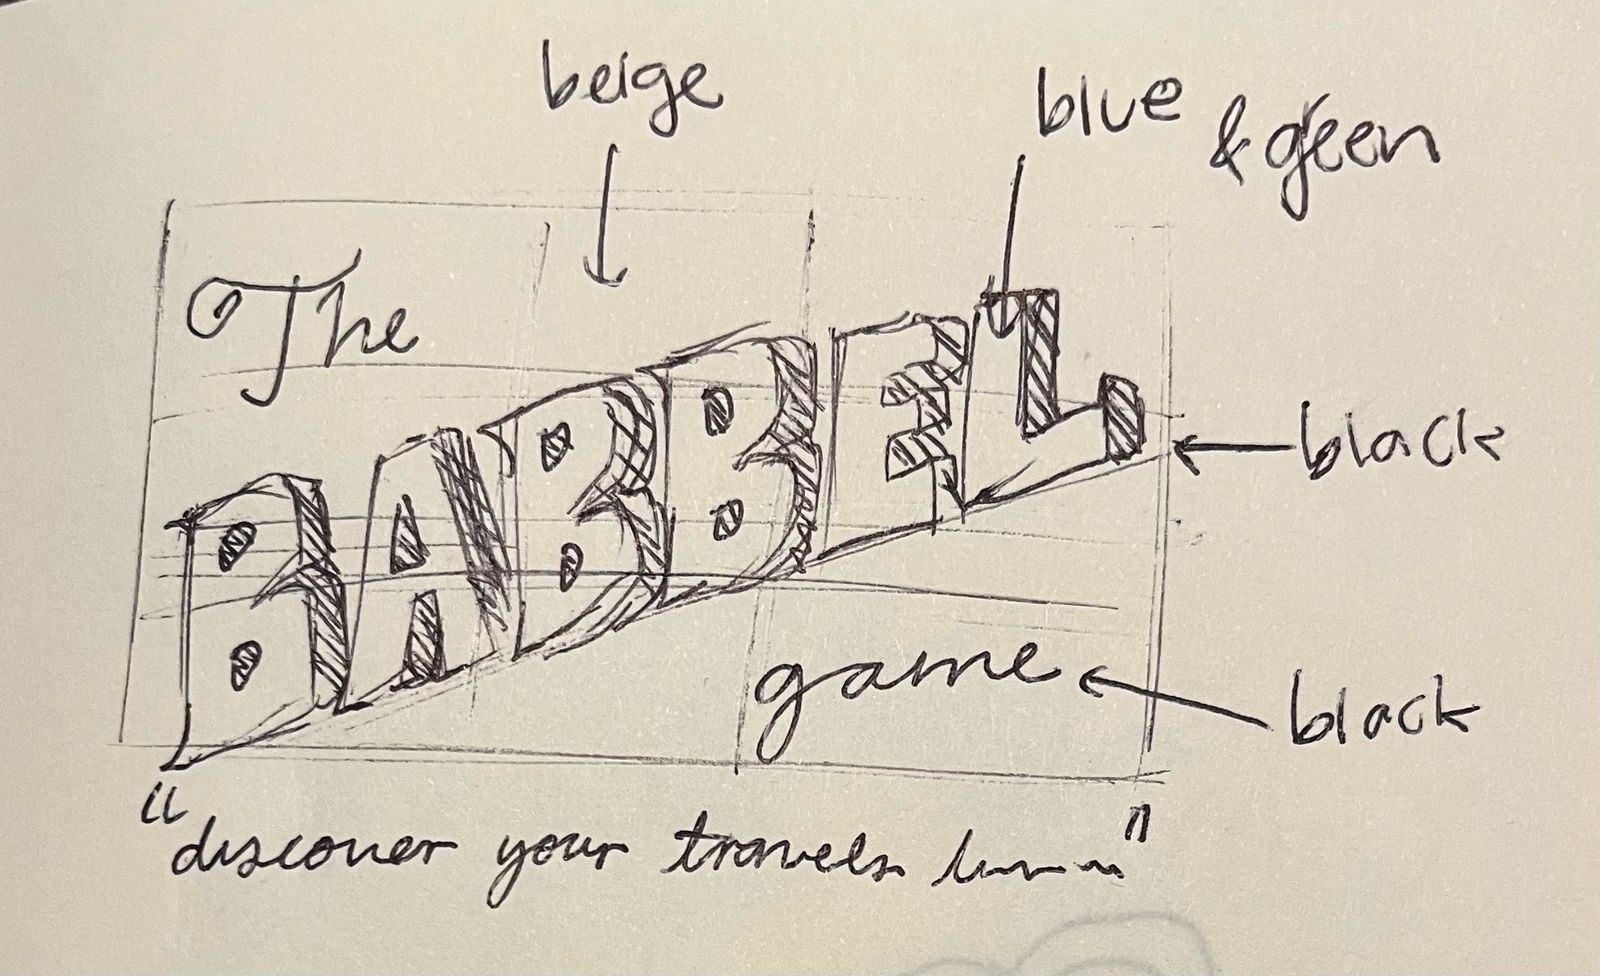 beige
blue & green
The
BABBEL
black
game
black
"discover your travels
"